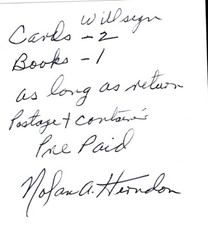 Will sign
Cards - 2
Books - 1
as long as return
Postage + container
Pre Paid
Nolan A. Herndon